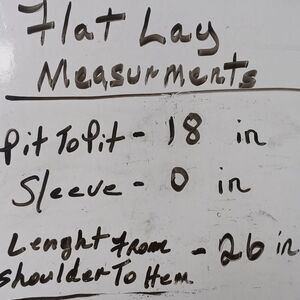 Flat Lay
Measurments
Pit To Pit - 18 in
Sleeve - 0 in
Lenght From
Shoulder To Hem - 26 in